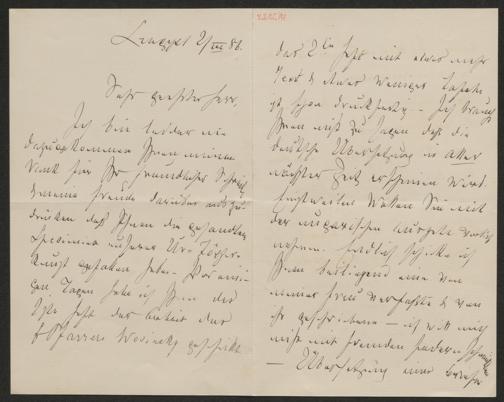 2/III 86.
Sehr geehrter Herr,
Ich bin leider nie
dazugekommen Ihnen meinen
Dank für Ihr freundliches Schreiben
& meine Freude darüber auszu-
drücken daß Ihnen die gesandten
Specimina unserer
gefallen haben. Vor eini-
gen Tagen habe ich Ihnen das
Heft der Arbeit des
Pfarrers Wosinsky geschickt
das 2te Heft mit etwas mehr
Text & etwas weniger Tafeln
ist schon druckfertig – Ich brauche
Ihnen nicht zu sagen daß die
deutsche Übersetzung in aller
nächster Zeit erscheinen wird.
Einstweilen wollen Sie mit
der ungarischen Ausgabe vorlieb
nehmen. Endlich schicke ich
Ihnen beiliegend eine von
meiner Frau verfaßte & von
ihr geschriebene – ich will mich
nicht mit fremden Federn schmücken
– Übersetzung einer